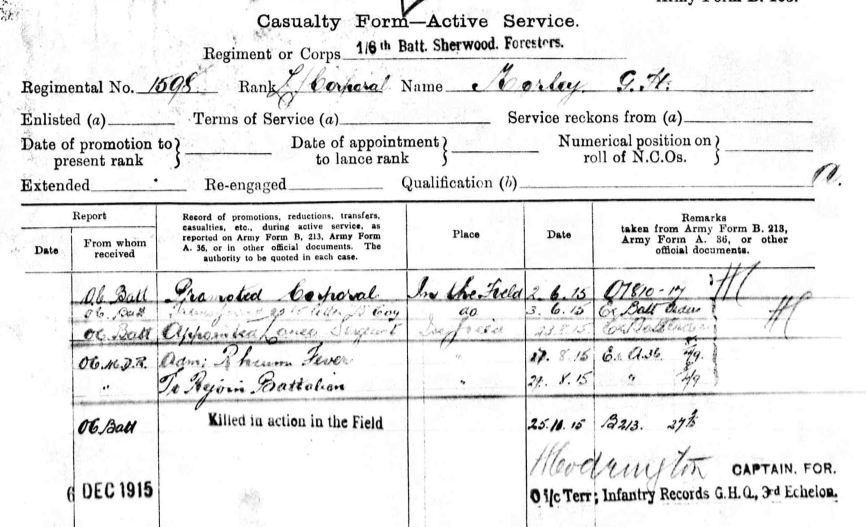 Casualty Form—Active Service.
Regiment or Corps 1/6th Batt. Sherwood. Foresters.
Regimental No. 1598 Rank L/Corporal Name Morley G.H.
Enlisted (a) Terms of Service (a) Service reckons from (a)
Date of promotion to present rank } Date of appointment to lance rank } Numerical position on roll of N.C.Os. }
Extended Re-engaged Qualification (b)
Report
Date
From whom received
Record of promotions, reductions, transfers, casualties, etc., during active service, as reported on Army Form B, 213, Army Form A. 36, or in other official documents. The authority to be quoted in each case.
Place
Date
Remarks taken from Army Form B. 213, Army Form A. 36, or other official documents.
OC Batt Promoted Corporal In the Field 2.6.15
OC Batt do 3.6.15 Ex Batt Orders
OC Batt Appointed Lance Sergeant In field 8.15
OC M.D.R. Adm; Rheum Fever " 8.15 Ex A.36
" To Rejoin Battalion " 8.15 "
OC Batt Killed in action in the Field 25.10.15 B213.
6 DEC 1915
CAPTAIN. FOR.
O i/c Terr; Infantry Records G.H.Q., 3rd Echelon.